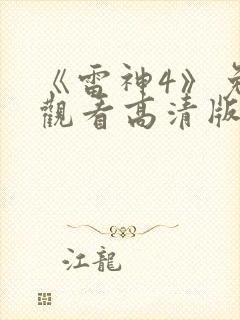 《雷神4》免
觀看高清版
江龍